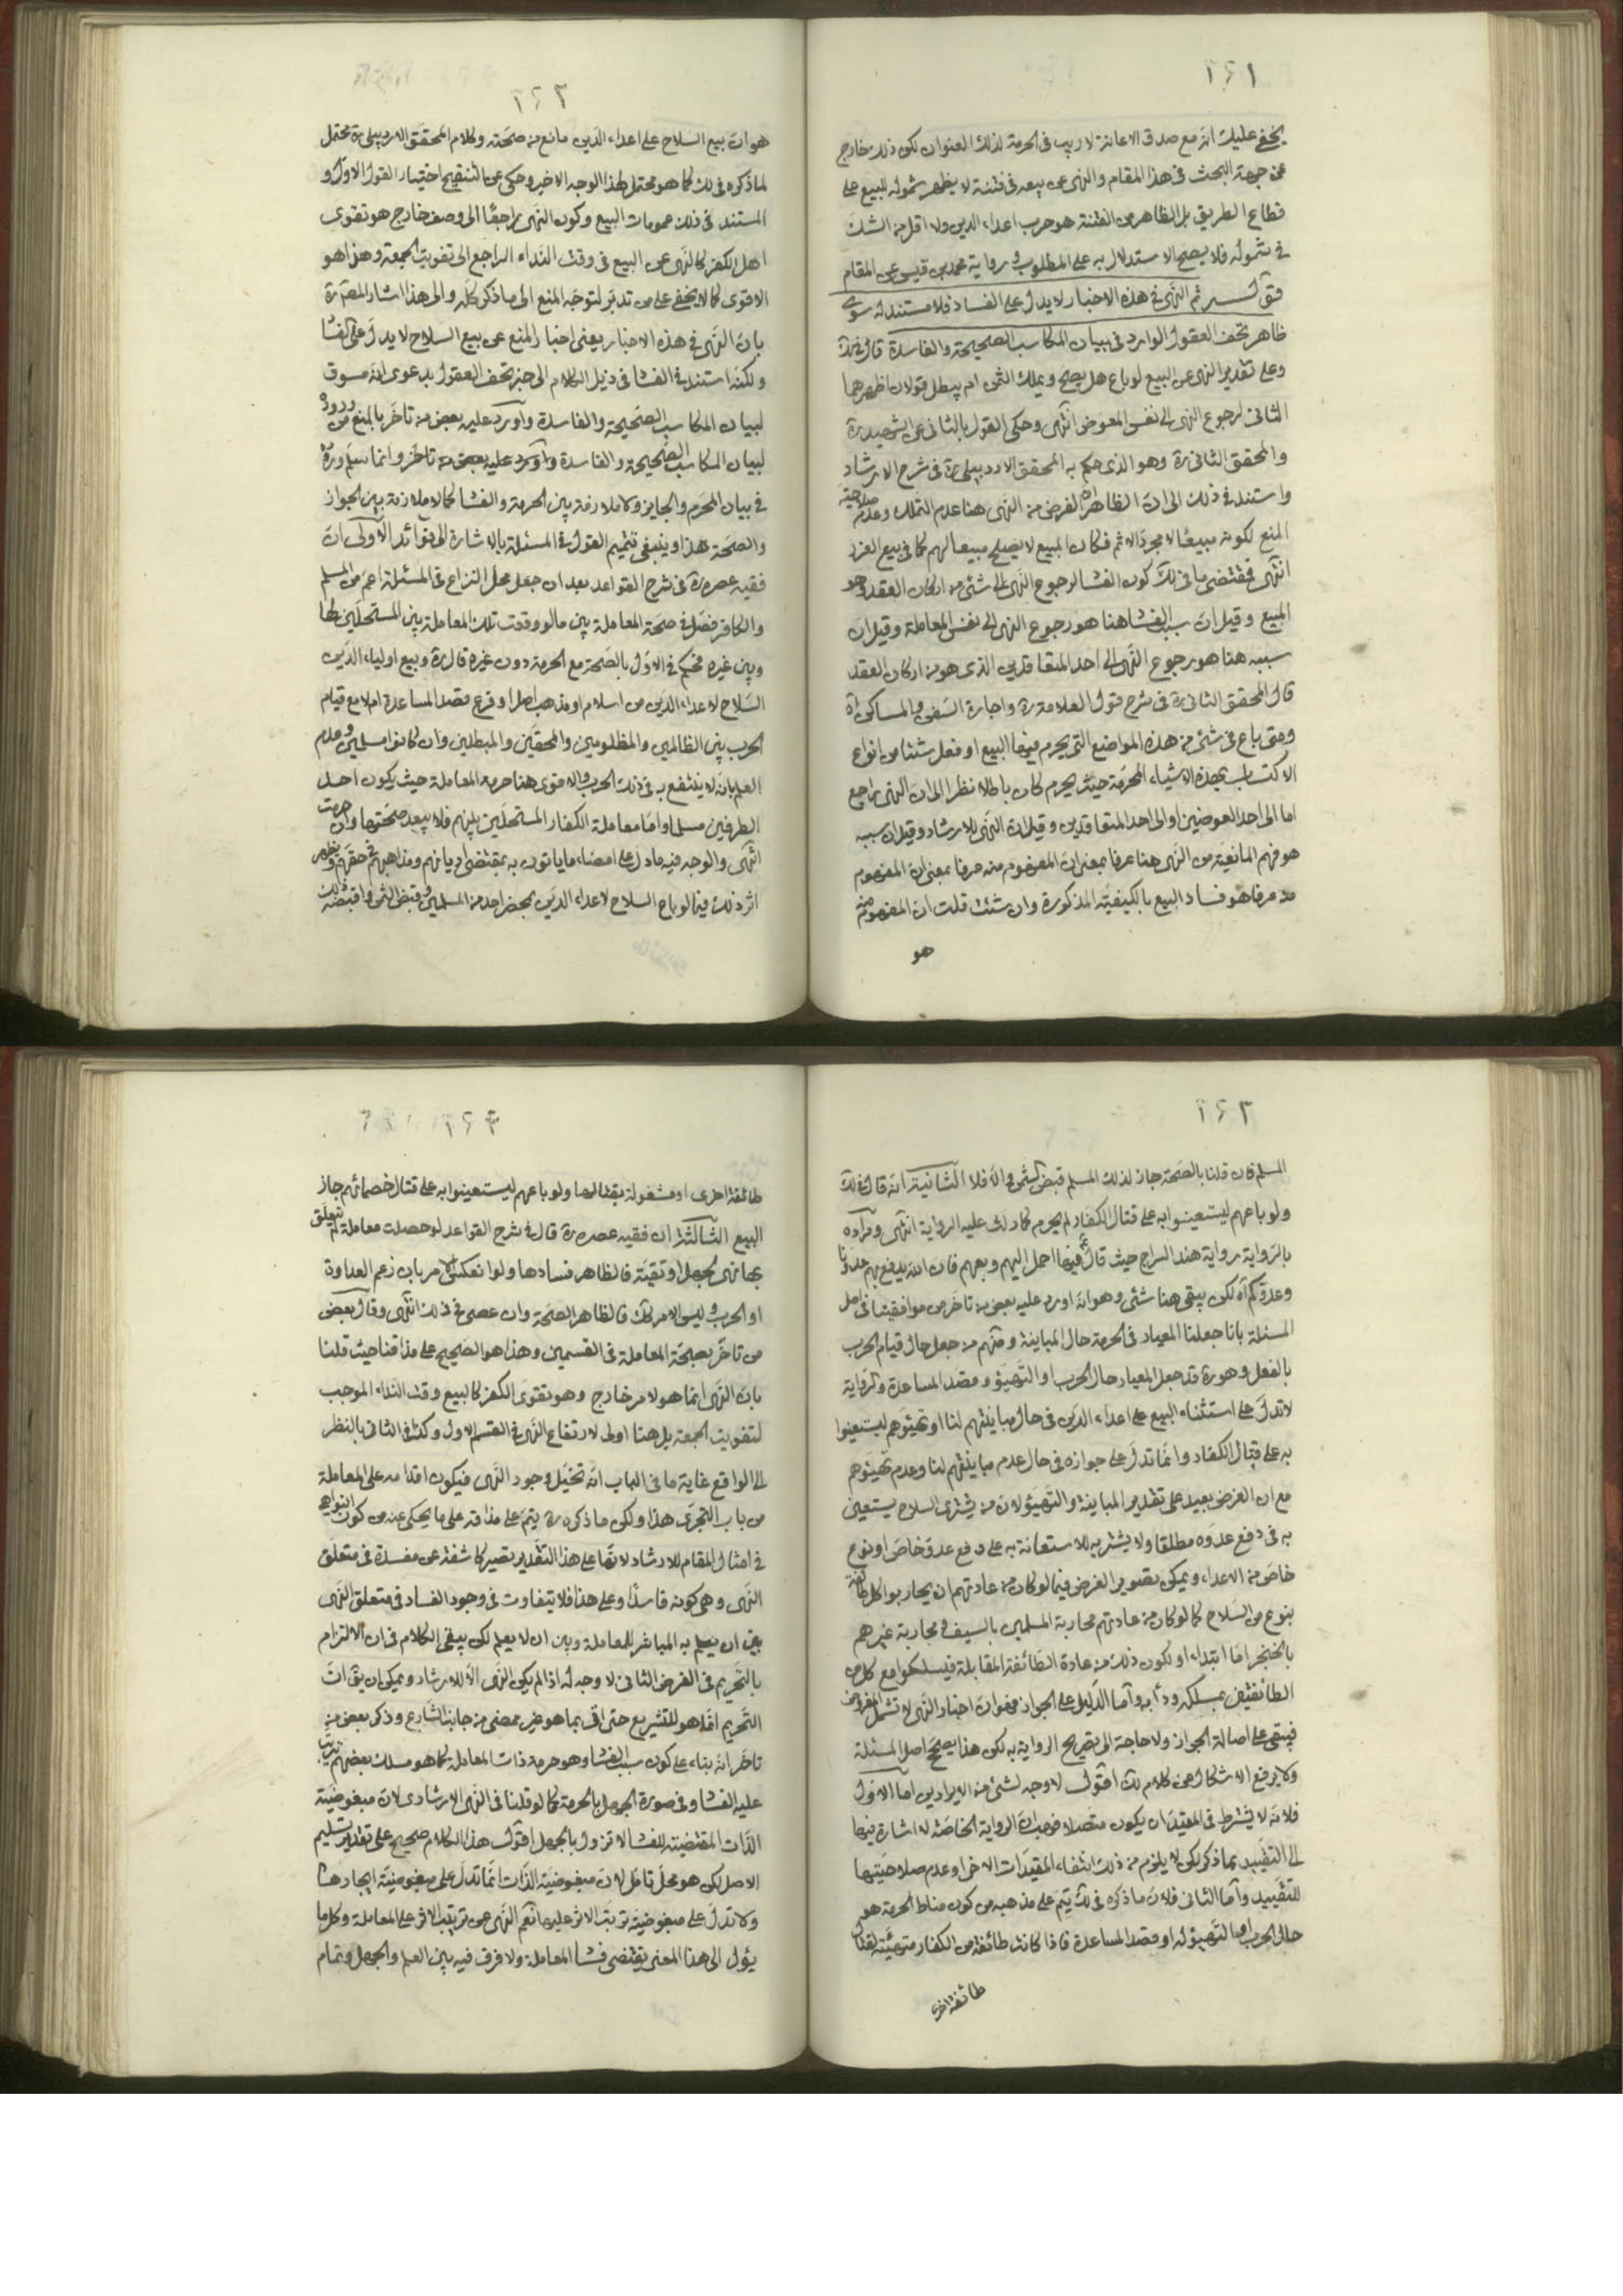 ١٦١
يخفى عليك انّه مع صدق الاعانة لا ريب فى الحرمة لذلك العنوان لكن ذلك خارج
عن جهة البحث فى هذا المقام والنهى عن بيعه فى فتنة لا يظهر شموله للبيع على
قطاع الطريق بل الظاهر من الفتنة هو حرب اعداء الدين ولا اقل من الشك
فى شموله فلا يصحّ الاستدلال به على المطلوب و رواية محمد بن قيس عن المقام
ثم النهى فى هذه الاخبار لا يدل على الفساد فلا مستند له سوى
ظاهر تحف العقول الوارد فى بيان المكاسب الصحيحة والفاسدة قال فى لك
وعلى تقدير النهى عن البيع لو باع هل يصح ويملك الثمن ام يبطل قولان اظهرهما
الثانى لرجوع النهى الى نفس المعوض انتهى وحكى القول بالثانى عن الشهيد ره
والمحقق الثانى ره وهو الذى حكم به المحقق الاردبيلى ره فى شرح الارشاد
واستند فى ذلك الى ان الظاهر ان الغرض من النهى هنا عدم التملك وعدم صلاحية
المبيع لكونه مبيعًا لا مجرد الاثم فكان المبيع لا يصلح مبيعا لهم كما فى بيع الغرر
انتهى فمقتضى ما فى لك كون الفسا لرجوع النهى الى شئ من اركان العقد وهو
المبيع وقيل ان سبب الفسا هنا هو رجوع النهى الى نفس المعاملة وقيل ان
سببه هنا هو رجوع النهى الى احد المتعاقدين الذى هو من اركان العقد
قال المحقق الثانى ره فى شرح قول العلامة ره واجارة السفن والمساكن اه
ومتى باع فى شئ من هذه المواضع التى يحرم فيها البيع او فعل شيئا من انواع
الاكتساب بهذه الاشياء المحرّمة حيث يحرم كان باطلا نظرا الى ان النهى راجع
اما الى احد العوضين او الى احد المتعاقدين وقيل ان النهى للارشاد وقيل ان سببه
هو فهم المانعية من النهى هنا عرفا بمعنى ان المفهوم منه عرفا بمعنى ان المفهوم
منه عرفا هو فساد البيع بالكيفية المذكورة وان شئت قلت ان المفهوم منه
هو
١٦٢
هو انّ بيع السلاح على اعداء الدين مانع من صحّته وكلام المحقق الاردبيلى ره محتمل
لما ذكره فى لك كما هو محتمل لهذا الوجه الاخير وحكى عن التنقيح اختيار القول الاول و
المستند فى ذلك عمومات البيع وكون النهى راجعًا الى وصف خارج هو تقوى
اهل الكفر كالنهى عن البيع فى وقت النداء الراجع الى تفويت الجمعة وهذا هو
الاقوى كما لا يخفى على من تدبّر لتوجّه المنع الى ما ذكر كله والى هذا اشار المص ره
بانّ النهى فى هذه الاخبار يعنى اخبار المنع عن بيع السلاح لا يدلّ على الفسا
ولكنه استند فى الفسا فى ذيل الكلام الى خبر تحف العقول بدعوى انه مسوق
لبيان المكاسب الصحيحة والفاسدة واورد عليه بعض من تأخر بالمنع من وروده
لبيان المكاسب الصحيحة والفاسدة واورد عليه بعض من تأخر وانما سلم وروده
فى بيان المحرم والجايز ولا ملازمة بين الحرمة والفسا كما لا ملازمة بين الجواز
والصحة هذا وينبغى تتميم القول فى المسئلة بالاشارة الى فوائد الاولى ان
فقيه عصره ره فى شرح القواعد بعد ان جعل محل النزاع فى المسئلة اعمّ من المسلم
والكافر فصّل فى صحة المعاملة بين ما لو وقعت تلك المعاملة بين المستحلين لها
وبين غيره فحكم فى الاول بالصحة مع الحرمة دون غيره قال ره وبيع اولياء الدين
السلاح لاعداء الدين من اسلام او مذهب اصلا و فرع قصد المساعدة ام لا مع قيام
الحرب بين الظالمين والمظلومين والمحقين والمبطلين وان كانوا مسلمين وعدم
العلم بانه لا ينتفع به فى ذلك الحرب والاقوى هنا حرمة المعاملة حيث يكون احد
الطرفين مسلما واما معاملة الكفار المستحلين بينهم فلا يبعد صحتها وان حرمت
انتهى والوجه فيه ما دل على امضاء ما ياتون به بمقتضى اديانهم ومذاهبهم فى حقهم ويظهر
اثر ذلك فيما لو باع السلاح لاعداء الدين بمحضر احد من المسلمين وقبض الثمن واقبضه ذلك
١٦٣
المسلم فان قلنا بالصحة جاز لذلك المسلم قبض الثمن والا فلا الثانية انه قال فى لك
ولو باعهم ليستعينوا به على قتال الكفار لم يحرم كما دلت عليه الرواية انتهى ومراده
بالرواية رواية هند السراج حيث قال ع فيها احمل اليهم وبعهم فان الله يدفع بهم عدونا
وعدوكم اه لكن يبقى هنا شئ وهو انه اورد عليه بعض من تاخر من موافقيها فى اصل
المسئلة بانا جعلنا المعيار فى الحرمة حال المباينة ومنهم من جعل حال قيام الحرب
بالفعل وهو ره قد جعل المعيار حال الحرب او التهيؤ وقصد المساعدة والرواية
لا تدل على استثناء البيع على اعداء الدين فى حال مباينتهم لنا او تهيؤهم ليستعينوا
به على قتال الكفار وانما تدل على جوازه فى حال عدم مباينتهم لنا وعدم تهيؤهم
مع ان الغرض بعيد على تقدير المباينة والتهيؤ لان من يشترى السلاح يستعين
به فى دفع عدوه مطلقا ولا يشتريه للاستعانة به على دفع عدو خاص او نوع
خاص من الاعداء ويمكن تصوير الفرض فيما لو كان من عادتهم ان يحاربوا كل طائفة
بنوع من السلاح كما لو كان من عادتهم محاربة المسلمين بالسيف ومحاربة غيرهم
بالخنجر اما ابتداء او لكون ذلك من عادة الطائفة المقابلة فيسلكوا مع كل من
الطائفتين بمسلكه ودأبه واما الدليل على الجواز فهو ان اخبار النهى لا تشمل المفروض
فيبقى على اصالة الجواز ولا حاجة الى تصريح الرواية به لكن هذا يصحح اصل المسئلة
ولا يرفع الاشكال عن كلام لك اقول لا وجه لشئ من الايرادين اما الاول
فلانه لا يشترط فى المقيد ان يكون متصلا فهب ان الرواية الخاصة لا اشارة فيها
الى التقييد بما ذكر لكن لا يلزم من ذلك انتفاء المقيدات الاخر او عدم صلاحيتها
للتقييد وأما الثانى فلان ما ذكره فى لك يتم على مذهبه من كون مناط الحرمة هو
حال الحرب او التهيؤ له او قصد المساعدة فاذا كانت طائفة من الكفار متهيئة لقتال
طائفة اخرى
١٦٤
طائفة اخرى او مشغولة بقتالها ولو باعهم ليستعينوا به على قتال خصمائهم جاز
البيع الثالثة ان فقيه عصره ره قال فى شرح القواعد لو حصلت معاملة لم يتعلق
بها نهى لجهل او تقية فالظاهر فسادها ولو انعكس الامر بان زعم العداوة
او الحرب وليس الامر كك فالظاهر الصحة وان عصى فى ذلك انتهى وقال بعض
من تأخر بصحة المعاملة فى القسمين وهذا هو الصحيح على مذاقنا حيث قلنا
بان النهى انما هو لامر خارج وهو تقوى الكفر كالبيع وقت النداء الموجب
لتفويت الجمعة بل هنا اولى لارتفاع النهى فى القسم الاول وكك فى الثانى بالنظر
الى الواقع غاية ما فى الباب انه تخيل وجود النهى فيكون اقدامه على المعاملة
من باب التجرى هذا ولكن ما ذكره ره يتم على مذاقه على ما يحكى عنه من كون النواهى
فى امثال المقام للارشاد لانها على هذا التقدير تصير كاشفة عن مفسدة فى متعلق
النهى وهى كونه فاسدًا وعلى هذا فلا يتفاوت فى وجود الفساد فى متعلق النهى
بين ان يعلم به المباشر للمعاملة وبين ان لا يعلم لكن يبقى الكلام فى ان الالتزام
بالتحريم فى الفرض الثانى لا وجه له اذا لم يكن النهى الا للارشاد ويمكن ان يق ان
التحريم انما هو للتشريع حتى اتى بما هو غير ممضى من جانب الشارع وذكر بعض من
تاخر انه بناء على كون سبب الفسا وهو حرمة ذات المعاملة كما هو مسلك بعضهم يترتب
عليه الفسا فى صورة الجهل بالحرمة كما لو قلنا فى النهى الارشادى لان مبغوضية
الذات المقتضية للفسا لا تزول بالجهل اقول هذا الكلام صحيح على تقدير تسليم
الاصل لكن هو محل تامل لان مبغوضية الذات انما تدل على مبغوضية ايجادها
ولا تدل على مبغوضية ترتب الاثر عليها نعم النهى عن ترتيب الاثر على المعاملة وكل ما
يؤل الى هذا المعنى يقتضى فسا المعاملة ولا فرق فيه بين العلم والجهل وتمام